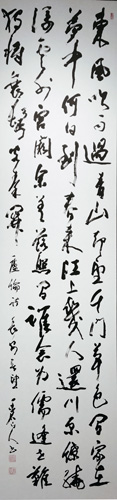 東風吹雨過青山却望千門草色閒家在
夢中何日到春來江上幾人還川原繚繞
浮雲外宮闕參差落照間誰念為儒逢世難
獨將衰鬢客秦關 盧綸詩長安春望